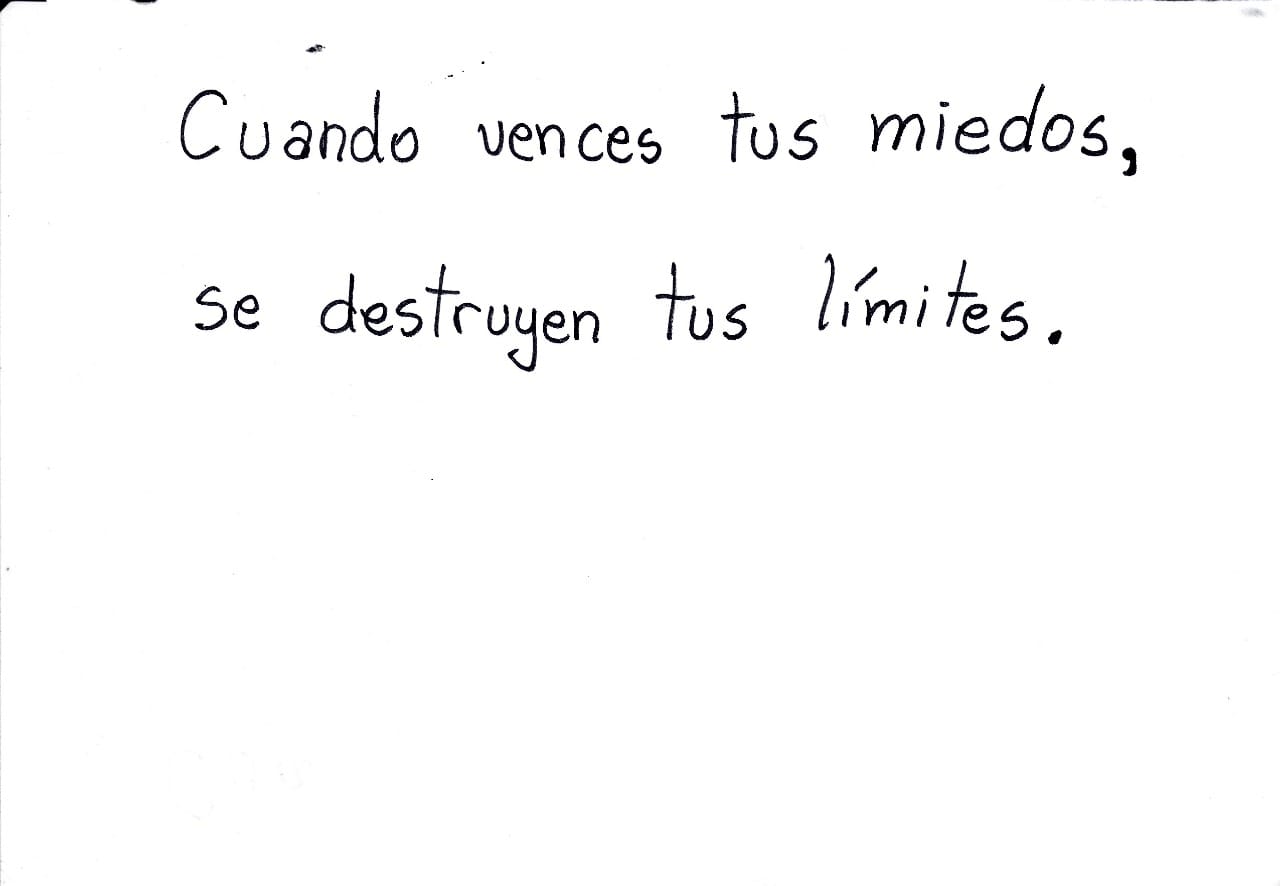 Cuando vences tus miedos,
se destruyen tus límites.